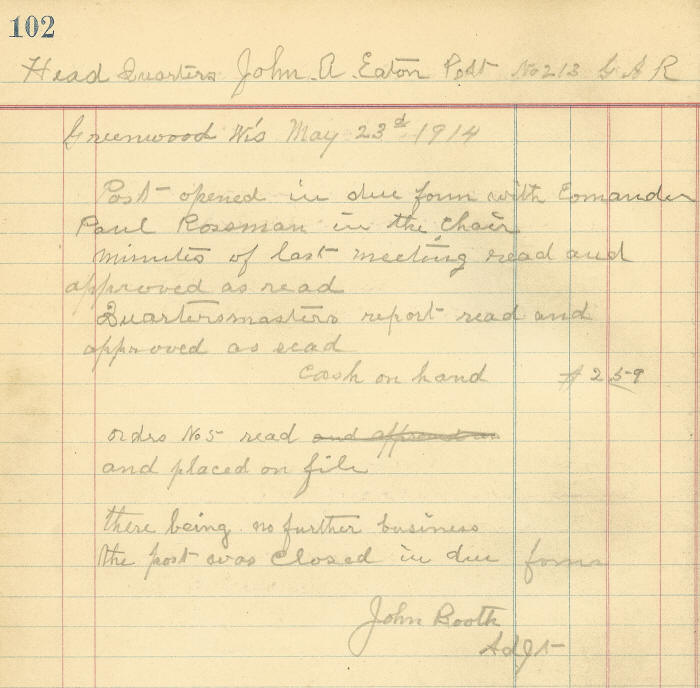 102
Head Quarters John A Eaton Post No 213 G A R
Greenwood Wis May 23d 1914
Post opened in due form with Comander
Paul Rossman in the chair
minutes of last meeting read and
approved as read
Quartersmasters report read and
approved as read
Cash on hand $ 2 59
ordrs No 5 read and approved as
and placed on file
there being no further business
the post was closed in due form
John Booth
Adjt